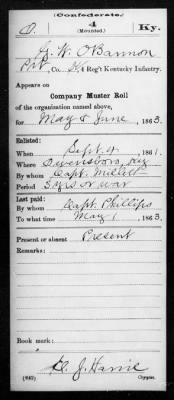 (Confederate.)
O. 4 Ky.
(Mounted.)
J. W. O'Bannon
Pvt, Co. K, 4 Reg't Kentucky Infantry.
Appears on
Company Muster Roll
of the organization named above,
for May & June, 1863.
Enlisted:
When Sept. 9, 1861.
Where Owensboro, Ky
By whom Capt. Millett
Period 3 yrs or war
Last paid:
By whom Capt. Phillips
To what time May 1, 1863.
Present or absent Present
Remarks:
Book mark:
J. Harrie
(642) Copyist.